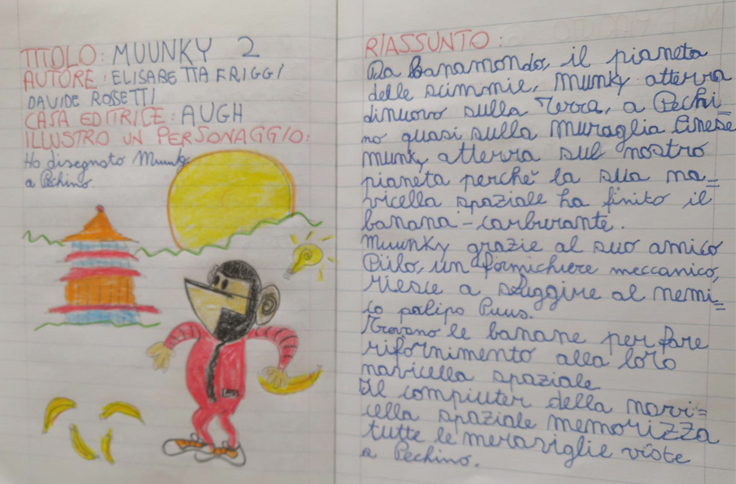 TITOLO: MUUNKY 2
AUTORE: ELISABETTA FRIGGI
DAVIDE ROSETTI
CASA EDITRICE: AUGH
ILLUSTRO UN PERSONAGGIO:
Ho disegnato Muunky
a Pechino.
RIASSUNTO:
Da Banamondo, il pianeta
delle scimmie, Munky atterra
dinuovo sulla Terra, a Pechi
no quasi sulla Muraglia Cinese
Munky atterra sul nostro
pianeta perché la sua na=
vicella spaziale ha finito il
banana-carburante.
Muunky grazie al suo amico
Pilo, un formichiere meccanico,
riesce a sfuggire al nemi=
co polipo Puus.
Trovano le banane per fare
rifornimento alla loro
navicella spaziale.
Il compiuter della navi=
cella spaziale memorizza
tutte le meraviglie viste
a Pechino.